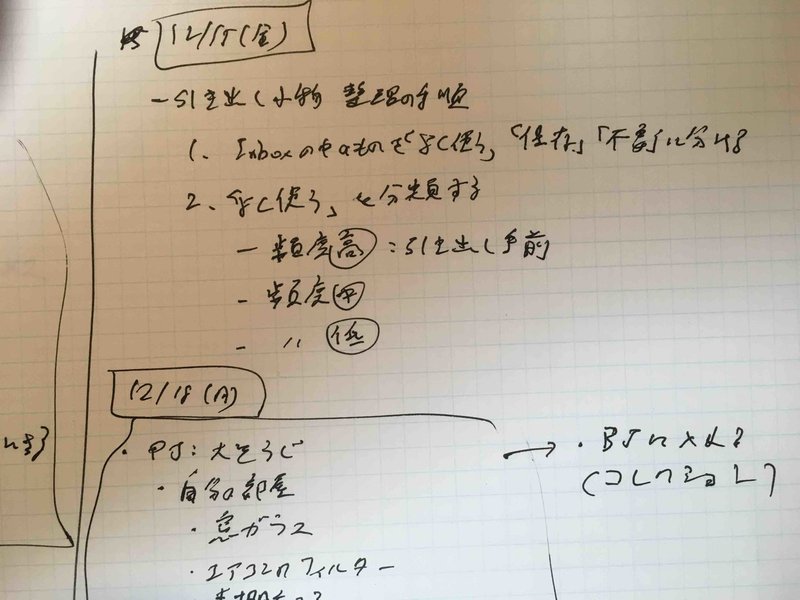 12/15(金)
－引き出し小物 整理の手順
1. Inboxの中のものを「よく使う」「保存」「不要」に分ける
2. 「よく使う」を分類する
－頻度高：引き出し手前
－頻度中
－〃 低
12/18(月)
・PJ：大そうじ
・自分の部屋
・窓ガラス
・エアコンのフィルター
→・BJに入れる
(コレクション)